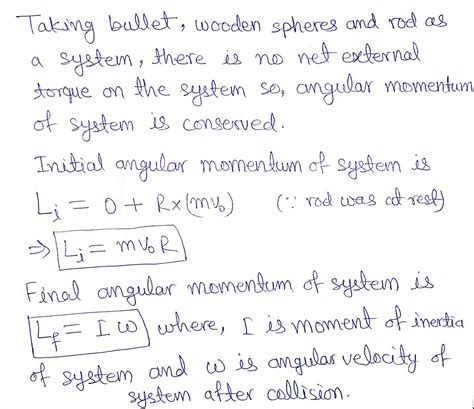 Taking bullet, wooden spheres and rod as
a system, there is no net external
torque on the system so, angular momentum
of system is conserved.
Initial angular momentum of system is
Li = 0 + R×(mv₀) (∵ rod was at rest)
⇒ Li = mv₀R
Final angular momentum of system is
Lf = I ω where, I is moment of inertia
of system and ω is angular velocity of
system after collision.